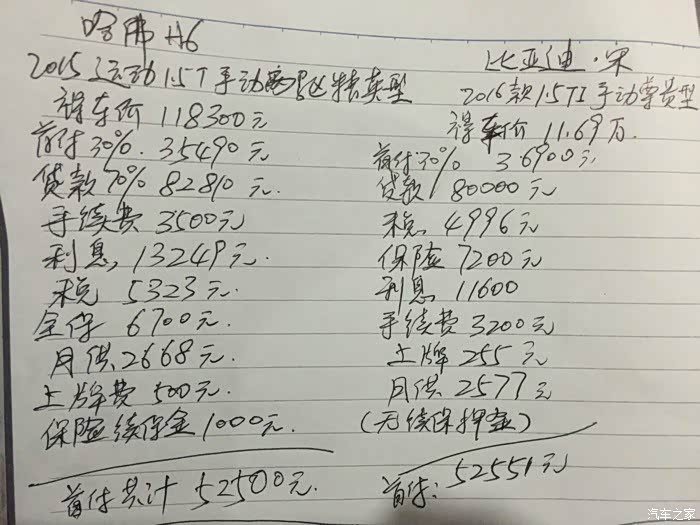 哈弗 H6
2015运动1.5T手动两驱精英型
裸车价 118300元
首付30%. 35490元
贷款70% 82810元.
手续费 3500元
利息, 13249元.
税 5323元.
全保 6700元.
月供 2668元.
上牌费 500元.
保险续保金 1000元.
首付共计 52500元.
比亚迪·宋
2016款1.5TI手动尊贵型
裸车价 11.69万.
首付30% 36900元
贷款 80000元
税. 4996元
保险 7200元
利息 11600
手续费 3200元
上牌 255元
月供 2577元
(无续保押金)
首付: 52551元
汽车之家